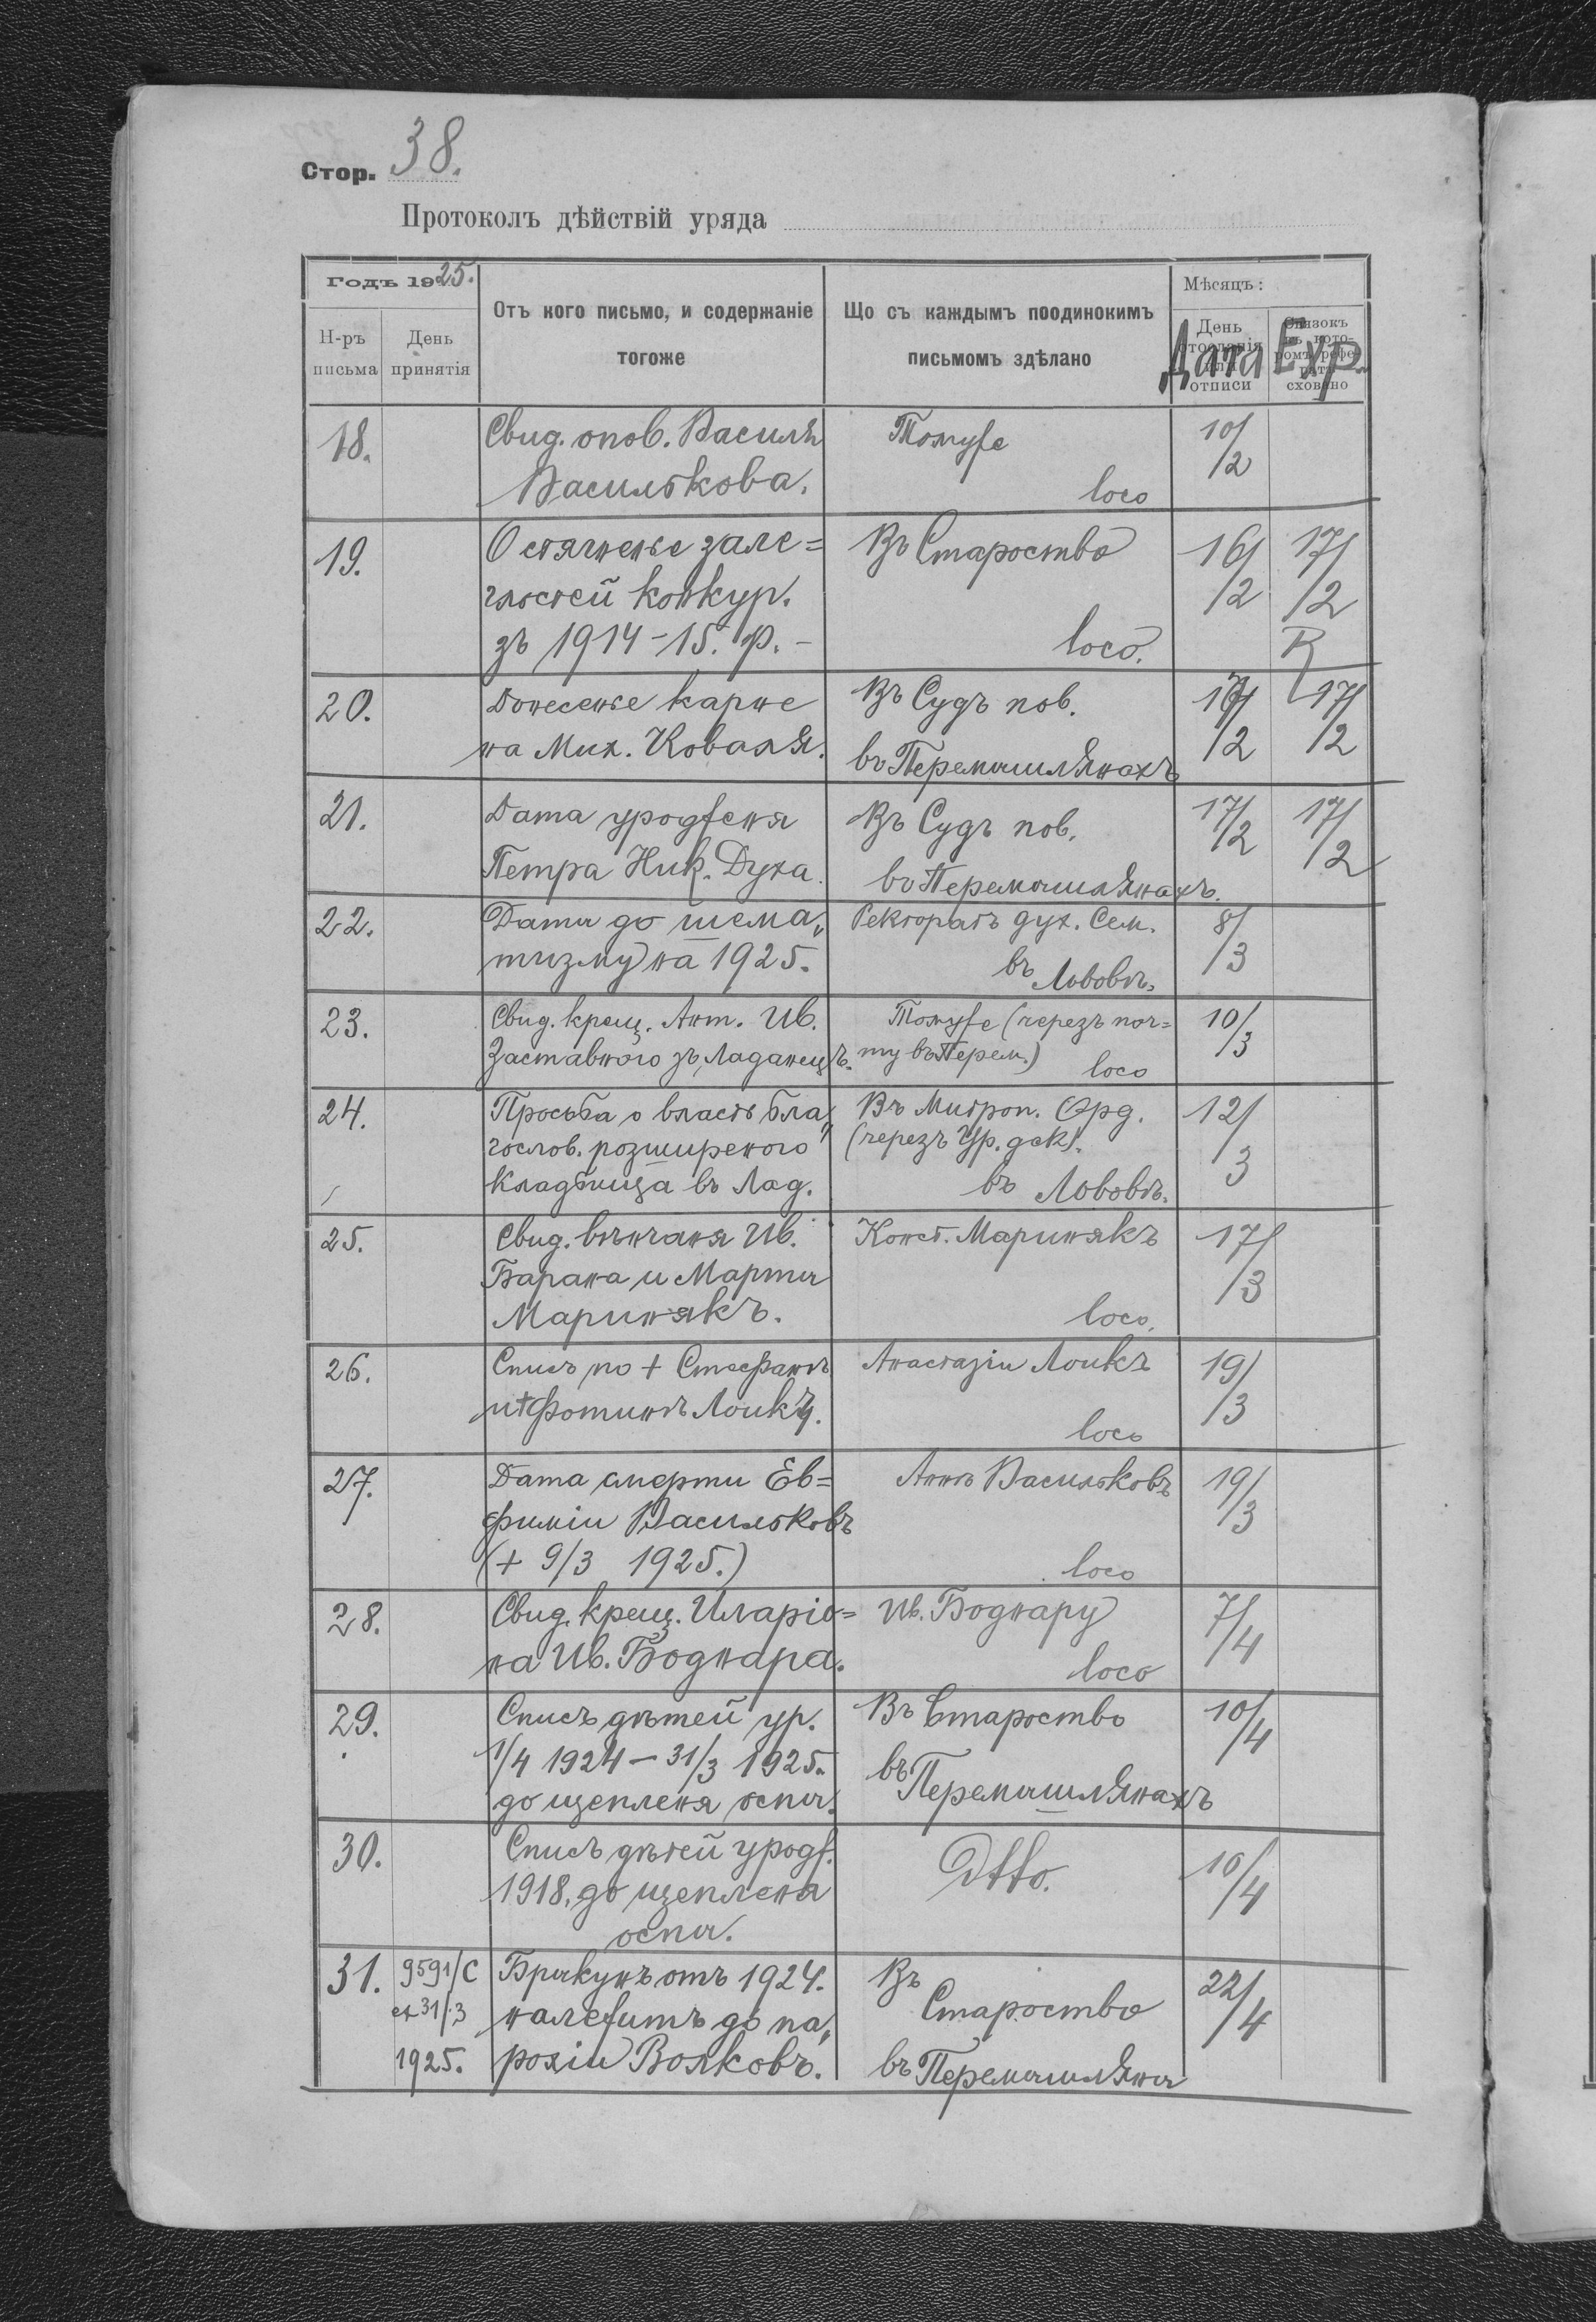 Стор. 38.
Протоколъ дѣйствій уряда
Годъ 1925.
Н-ръ письма
День принятія
Отъ кого письмо, и содержаніе
тогоже
Що съ каждымъ поодинокимъ
письмомъ здѣлано
Мѣсяцъ:
День
отписи
Дата
Связокъ
сховано
Exp.
18. Свид. опов. Василя Томуже 10/2
Василькова. loco
19. О стягненье зале= Въ Староство 16/2 17/2
глостей конкур.
зъ 1914–15. р.– loco. R
20. Донесенье карне Въ Судъ пов. 17/2 17/2
на Мих. Коваля. въ Перемишлянахъ
21. Дата уродженя Въ Судъ пов. 17/2 17/2
Петра Ник. Духа. въ Перемишлянахъ.
22. Даты до шема„ Ректоратъ дух. Сем. 8/3
тизму на 1925. въ Львовѣ.
23. Свид. крещ. Ант. Ив. Томуже (через поч= 10/3
Заставного зъ Ладанецъ. ту въ Перем.) loco
24. Просьба о власть бла„ Въ Митроп. Орд. 12/3
гослов. розширеного (черезъ Ур. дек).
кладбища въ Лад. въ Львовѣ.
25. Свид. вѣнчаня Ив. Конст. Маринякъ 17/3
Барана и Марты
Маринякъ. loco.
26. Списъ по + Стефанѣ Анастазіи Лоикъ 19/3
и + Фотинѣ Лоикъ. loco
27. Дата смерти Ев= Аннѣ Васильковъ 19/3
фиміи Васильковъ
(+ 9/3 1925.) loco
28. Свид. крещ. Иларіо= Ив. Боднару 7/4
на Ив. Боднара. loco
29. Списъ дѣтей ур. Въ Староство 10/4
1/4 1924 – 31/3 1925. въ Перемышлянахъ
до щепленя оспы.
30. Списъ дѣтей уродж. Dtto. 10/4
1918. до щепленя
оспы.
31. 9591/C Брыкунъ отъ 1924. Въ 22/4
et 31/3 належитъ до па„ Староство
1925. рохіи Волковъ. въ Перемышляны